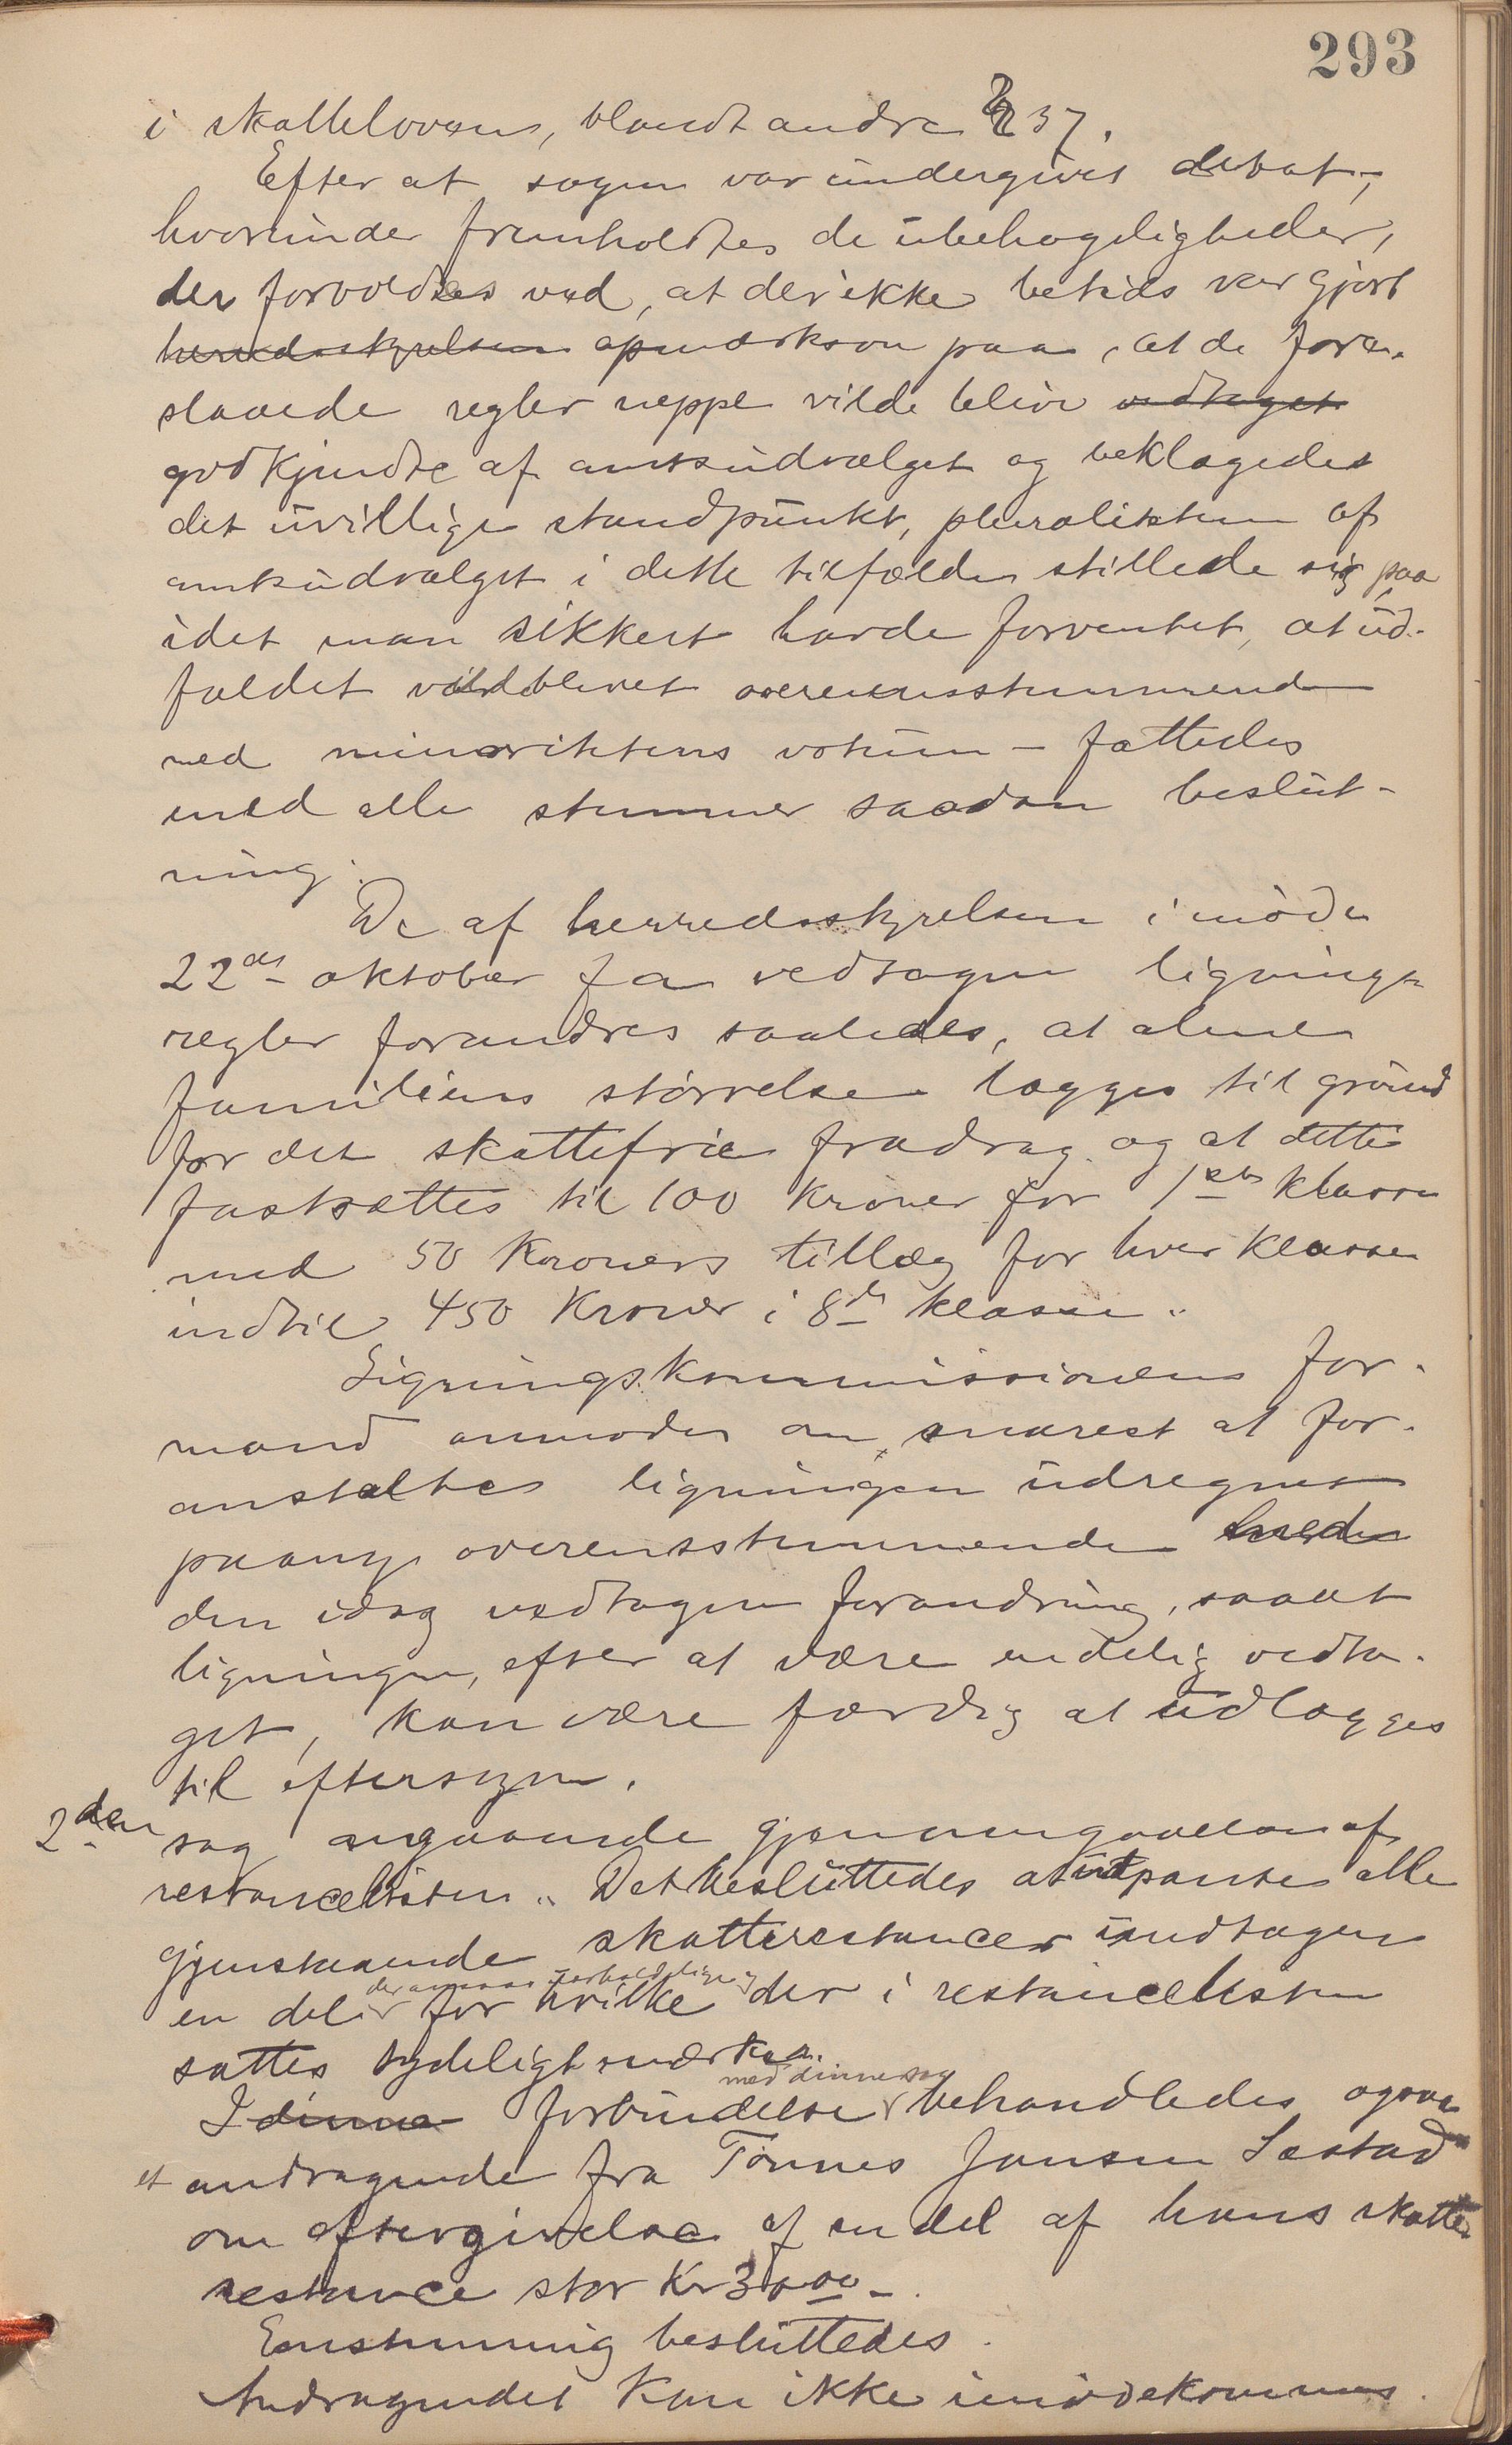 293
i skatteloven, blandt andre § 37.
Efter at sagen var undergivet debat,
hvorunder fremholdtes de ubehageligheder,
der forvoldtes ved, at der ikke betids var gjort
herredsstyrelsen opmærksom paa, at de fore-
slaaede regler neppe vilde blive vedtaget
godkjendte af amtsudvalget og beklagedes
det uvillige standpunkt, pluraliteten af
amtsudvalget i dette tilfælde stillede sig paa
idet man sikkert havde forventet, at ud-
faldet vilde blevet overensstemmende
med minoritetens votum – fattedes
med alle stemmer saadan beslut-
ning:
De af herredsstyrelsen i møde
22de oktober f a vedtagne lignings-
regler forandres saaledes, at alene
familiens størrelse lægges til grund
for det skattefrie fradrag og at dette
fastsættes til 100 kroner for 1ste klasse
med 50 Kroners tillæg for hver klasse
indtil 450 Kroner i 8de klasse.
Ligningskommissionens for-
mand anmodes om snarest at for-
anstalte ligningen udregnet
paany overensstemmende med
den idag vedtagne forandring, saa at
ligningen, efter at være endelig vedta-
get, kan være færdig at udlægges
til eftersyn.
2den sag angaaende gjennemgaaelse af
restancelisten. Det besluttedes at udpante alle
gjenstaaende skatterestancer undtagen
en del for hvilke der i restancelisten
sattes tydeligt mærke.
med denne sag
I denne forbindelse behandledes ogsaa
et andragende fra Tønnes Jansen Sæstad
om eftergivelse af en del af hans skatte
restance stor Kr 30.00 –.
Enstemmig besluttedes.
Andragendet kan ikke imødekommes.